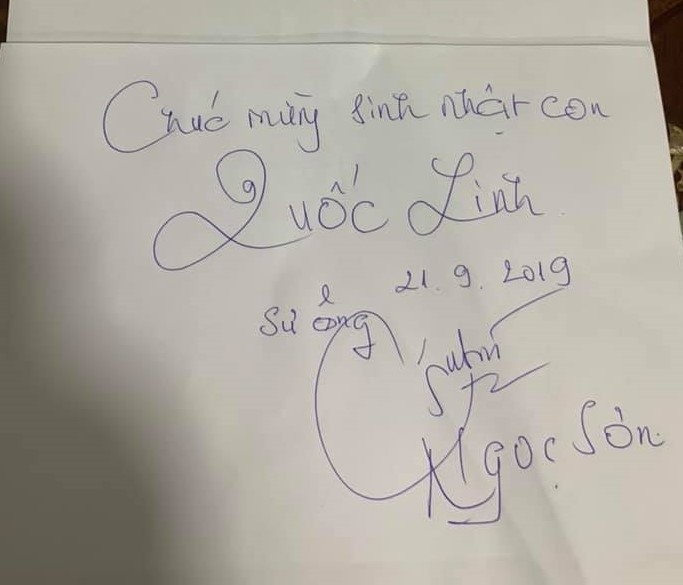 Chúc mừng sinh nhật con
Quốc Linh
21.9.2019
Sư ông
Ngọc Sơn